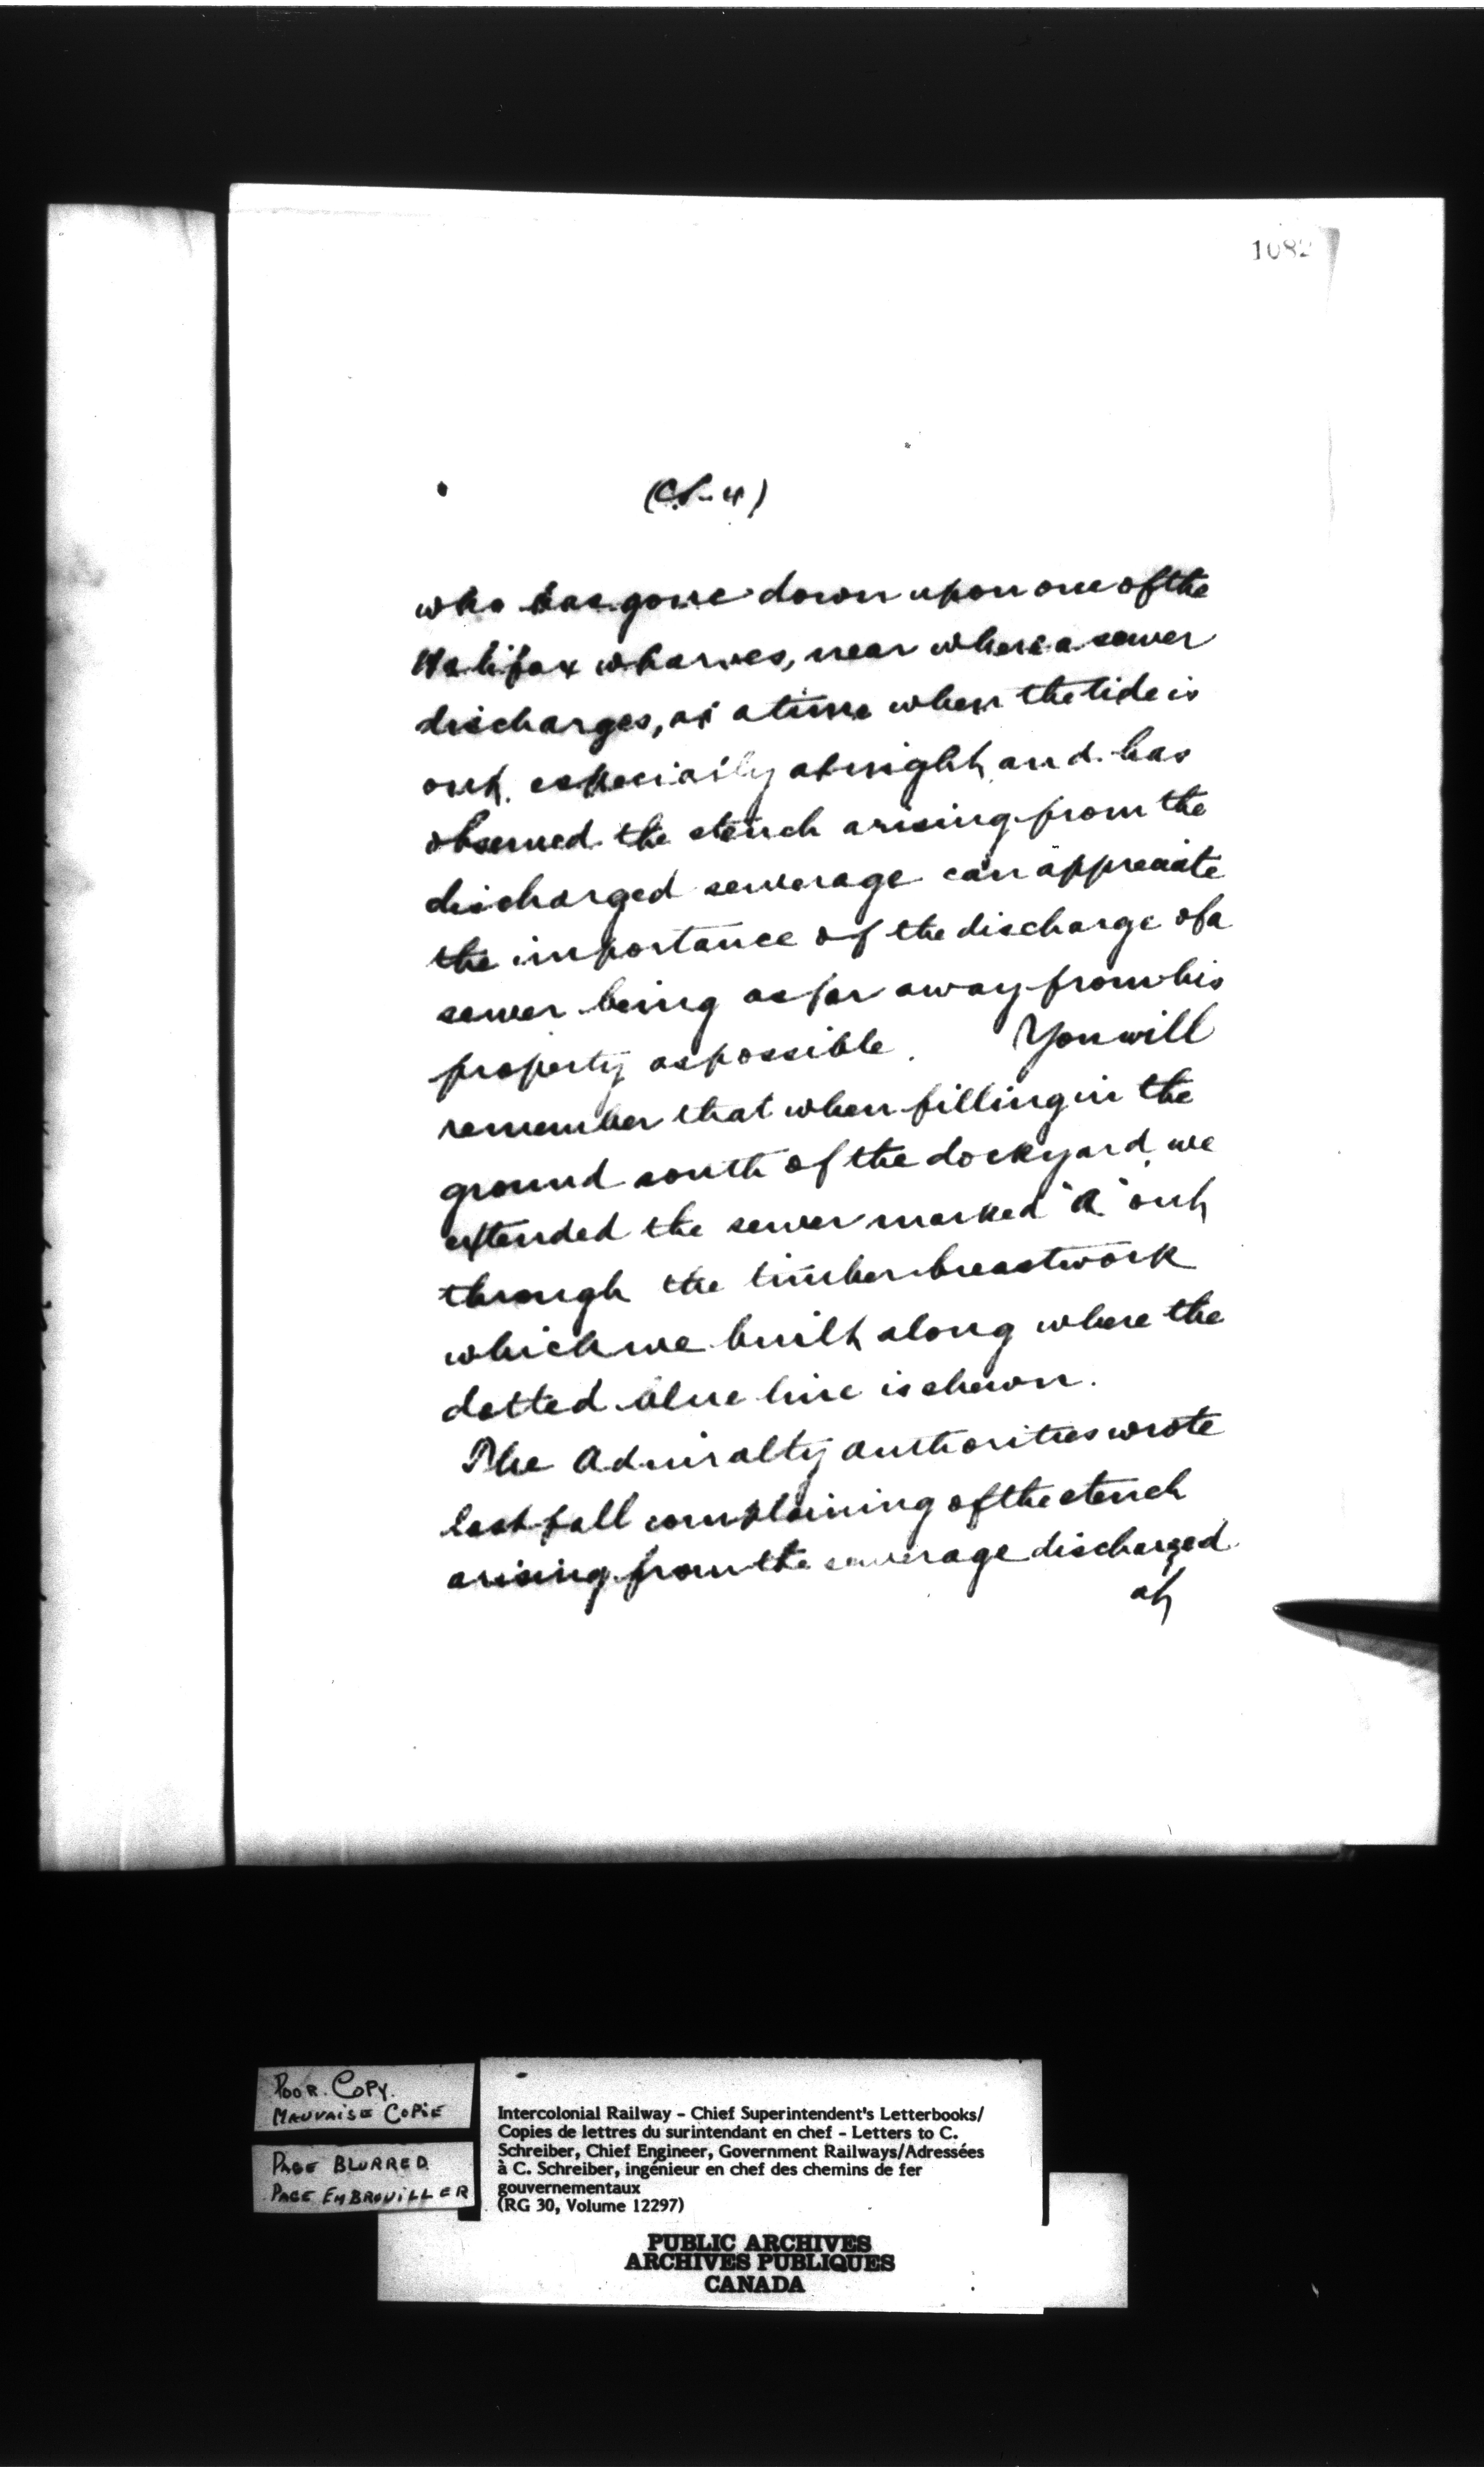 1082
(C.S. 4)
who has gone down upon one of the
Halifax wharves, near where a sewer
discharges, at a time when the tide is
out, especially at night, and has
observed the stench arising from the
discharged sewerage can appreciate
the importance of the discharge of a
sewer being as far away from his
property as possible. You will
remember that when filling in the
ground south of the dockyard, we
extended the sewer marked "A" out
through the timber breastwork
which we built along where the
dotted blue line is shewn.
The Admiralty authorities wrote
last fall complaining of the stench
arising from the sewerage discharged
at
POOR COPY.
MAUVAISE COPIE
PAGE BLURRED
PAGE EMBROUILLER
Intercolonial Railway - Chief Superintendent's Letterbooks/
Copies de lettres du surintendant en chef - Letters to C.
Schreiber, Chief Engineer, Government Railways/Adressées
à C. Schreiber, ingénieur en chef des chemins de fer
gouvernementaux
(RG 30, Volume 12297)
PUBLIC ARCHIVES
ARCHIVES PUBLIQUES
CANADA